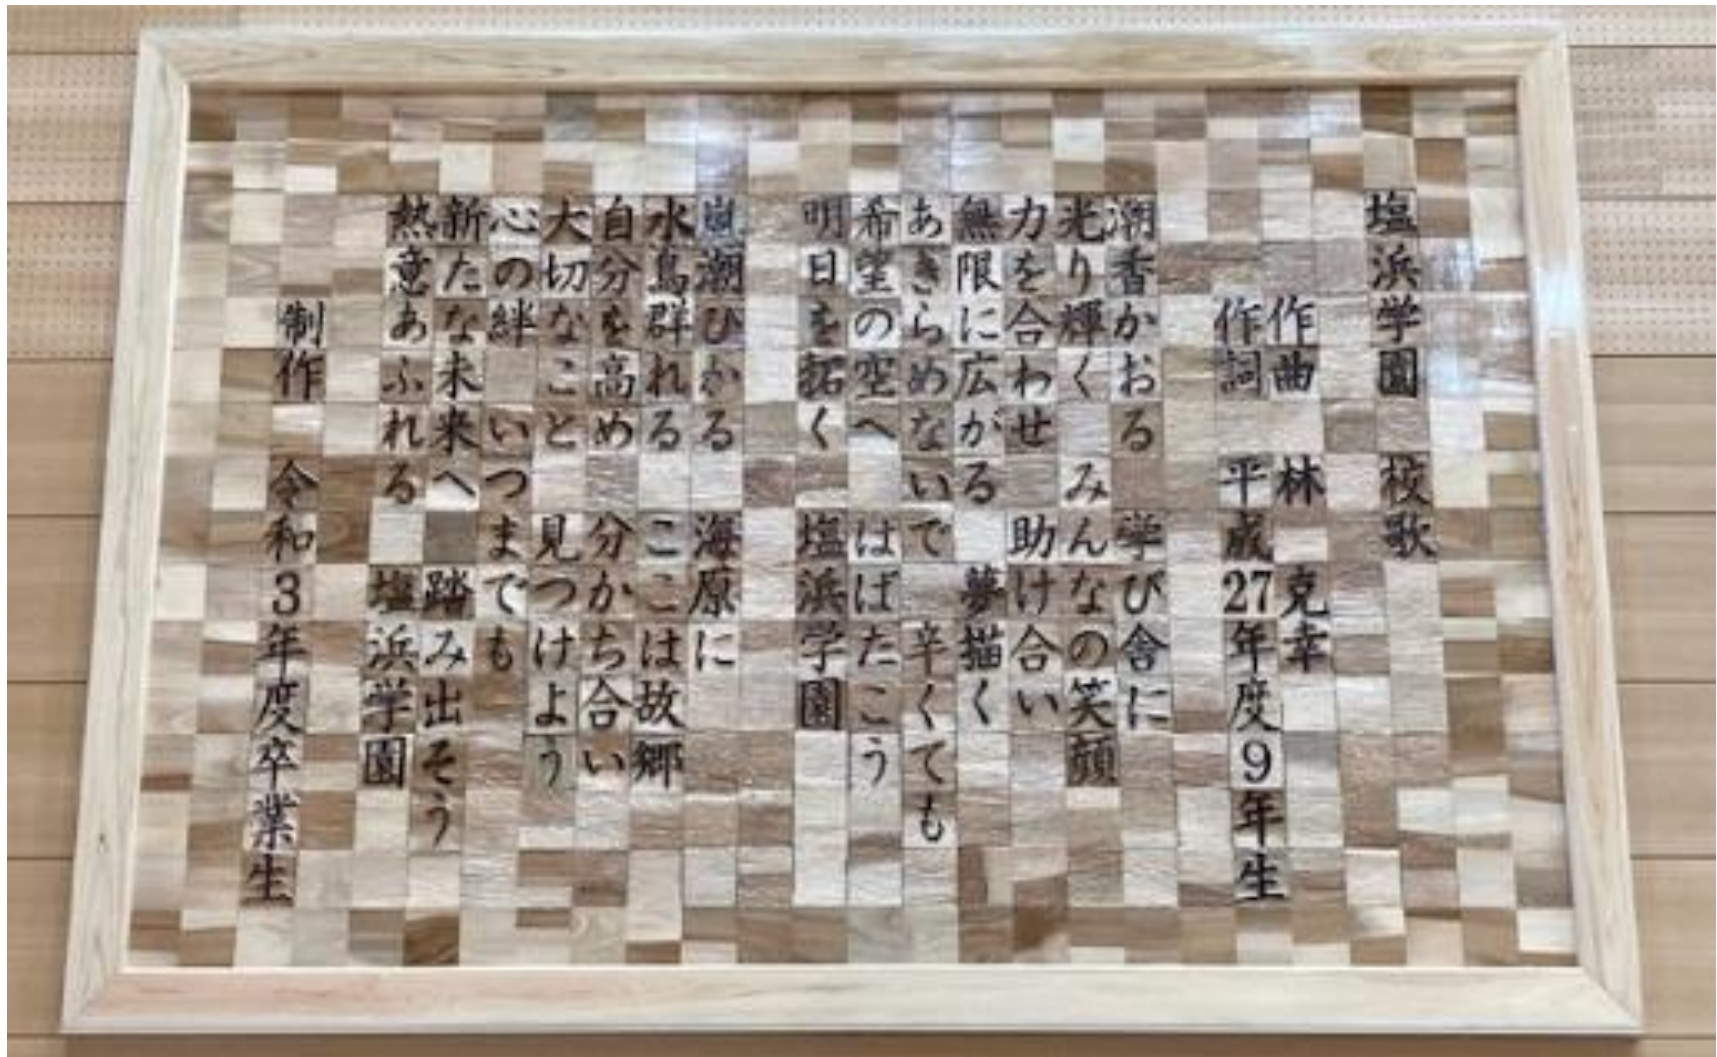 塩浜学園 校歌
作曲 林 克幸
作詞 平成27年度9年生
潮香かおる 学び舎に
光り輝く みんなの笑顔
力を合わせ 助け合い
無限に広がる 夢描く
あきらめないで 辛くても
希望の空へ はばたこう
明日を拓く 塩浜学園
ひかる 海原に
水鳥群れる ここは故郷
自分を高め 分かち合い
大切なこと 見つけよう
心の絆 いつまでも
新たな未来へ 踏み出そう
熱意あふれる 塩浜学園
制作 令和3年度卒業生